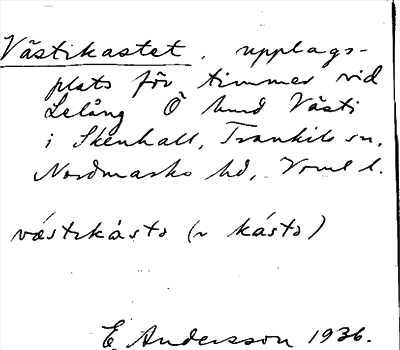 Västikastet, upplags-
plats för timmer vid
Lelång Ö hmd Västi
i Skenhall, Trankils sn,
Nordmarks hd, Vrml l.
västikásto (~ kásto)
E Andersson 1936.